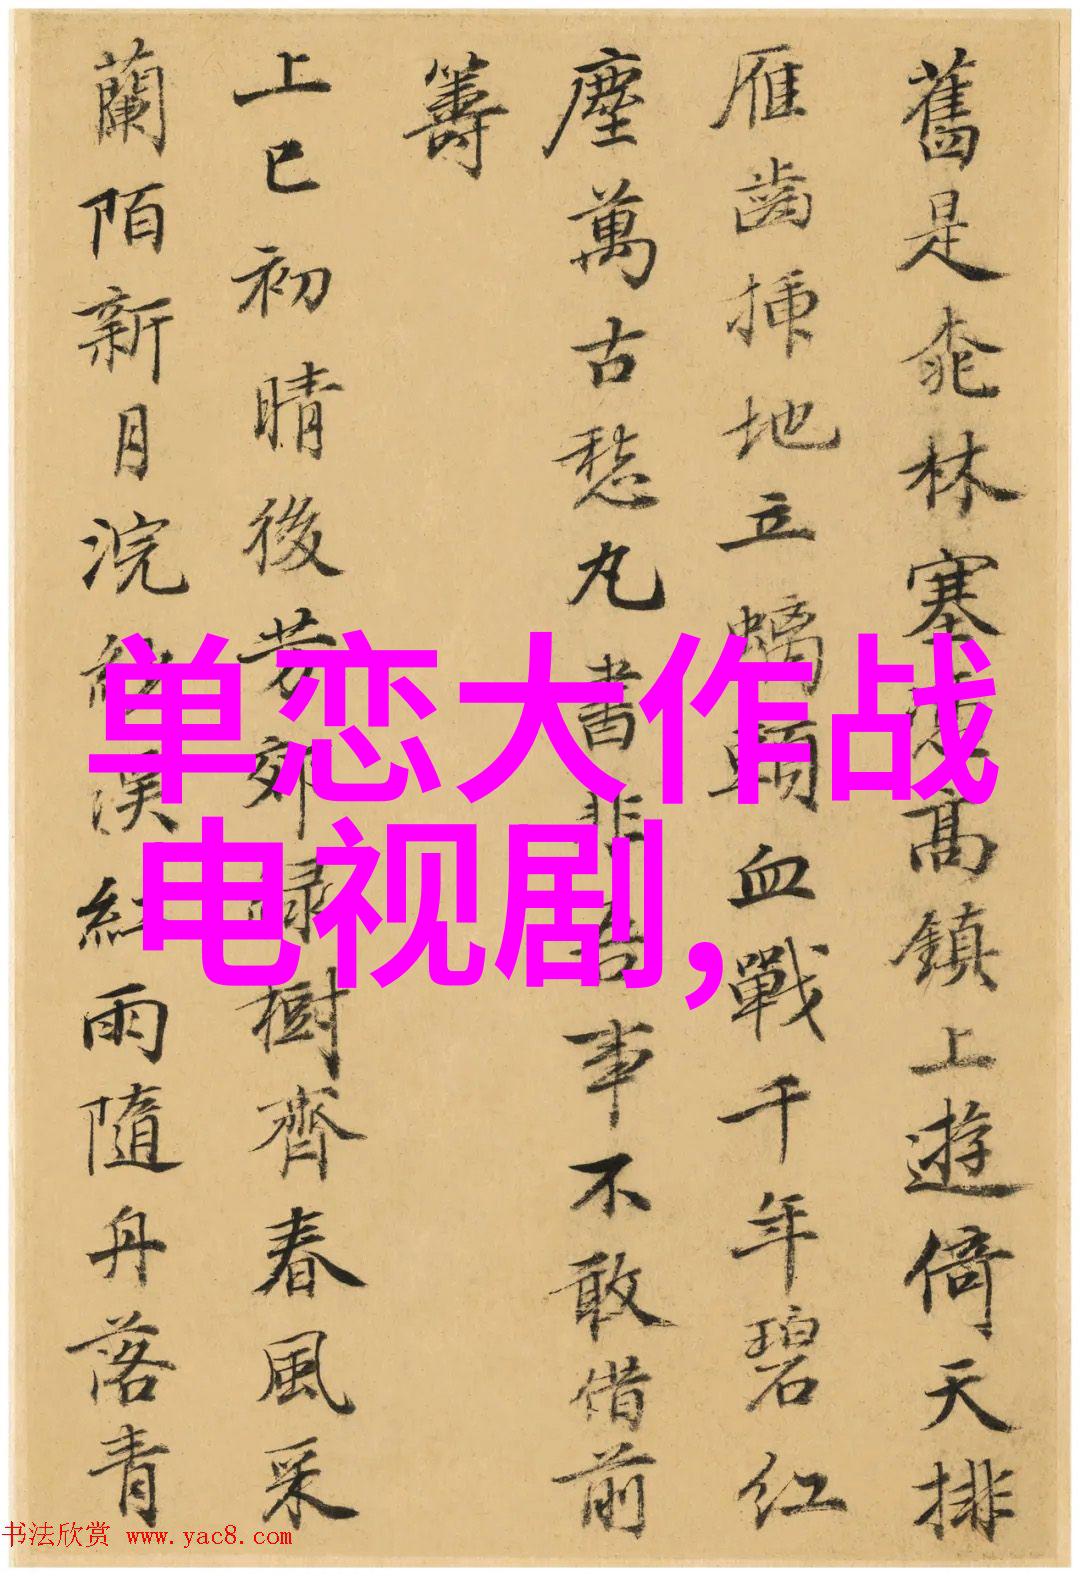 舊是桃林塞高鎮上遊倚天排
雁齒插地立螭頭血戰千年碧紅
塵萬古愁丸書非吾事不敢借前
籌
上巳初晴後芳郊綠樹齊春風采
蘭陌新月浣紗溪紅雨隨舟落青
单恋大作战
电视剧,
书法欣赏 www.yac8.com